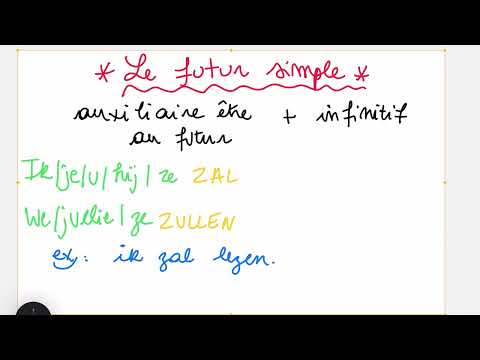 * Le futur simple *
auxiliaire être + infinitif
au futur
Ik/je/u/hij/ze ZAL
We/jullie/ze ZULLEN
ex: ik zal lezen.